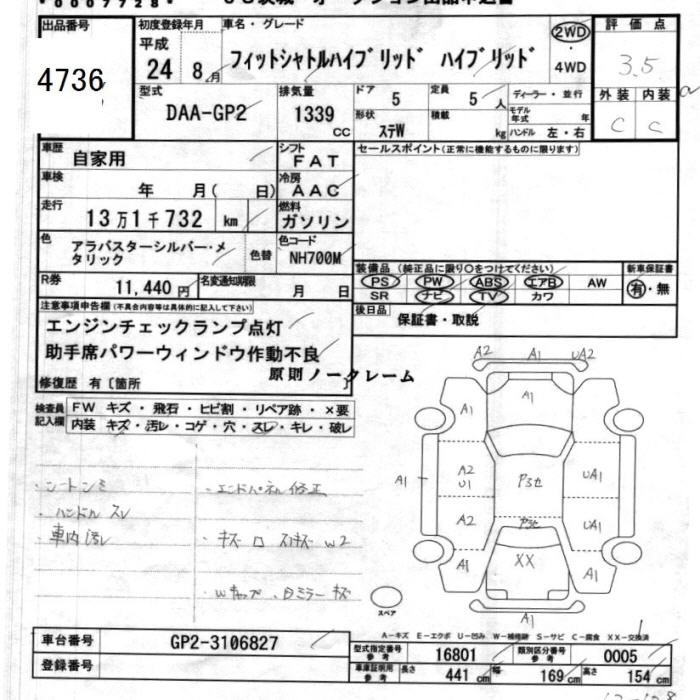 *0007728*
出品番号
4736
初度登録年月
平成
24 8月
車名・グレード
フィットシャトルハイブリッド ハイブリッド
2WD
・
4WD
評価点
3.5
外装 内装
C C
型式
DAA-GP2
排気量
1339 CC
ドア
5
定員
5 人
形状
ステW
積載
kg
ディーラー・並行
モデル年式 年
ハンドル 左・右
車歴
自家用
シフト
FAT
車検
年 月( 日)
冷房
AAC
走行
13万1千732 km
燃料
ガソリン
色
アラバスターシルバー・メタリック
色替
色コード
NH700M
R券
11,440円
名変通知期限
月 日
セールスポイント(正常に機能するものに限ります)
装備品 (純正品に限り○をつけてください)
PS PW ABS エアB AW
SR ナビ TV カワ
新車保証書
有・無
後日品
保証書・取説
注意事項申告欄(不具合内容等は具体的に記入して下さい)
エンジンチェックランプ点灯
助手席パワーウィンドウ作動不良
修復歴 有〔箇所
原則ノークレーム
検査員記入欄
FW キズ・飛石・ヒビ割・リペア跡・×要
内装 キズ・汚レ・コゲ・穴・スレ・キレ・破レ
・シートシミ
・ハンドル スレ
・車内汚レ
・エンドパネル修正
A2 A1 UA2
A1 A1
A1
A2 U1
Pスセ
UA1
A2
Pスセ
UA1
A1 XX A1
A1
スペア
A-キズ E-エクボ U-凹み W-補修跡 S-サビ C-腐食 XX-交換済
車台番号
GP2-3106827
登録番号
型式指定番号 参考
16801
類別区分番号 参考
0005
車庫証明用 参考
長さ 441 cm 幅 169 cm 高さ 154 cm